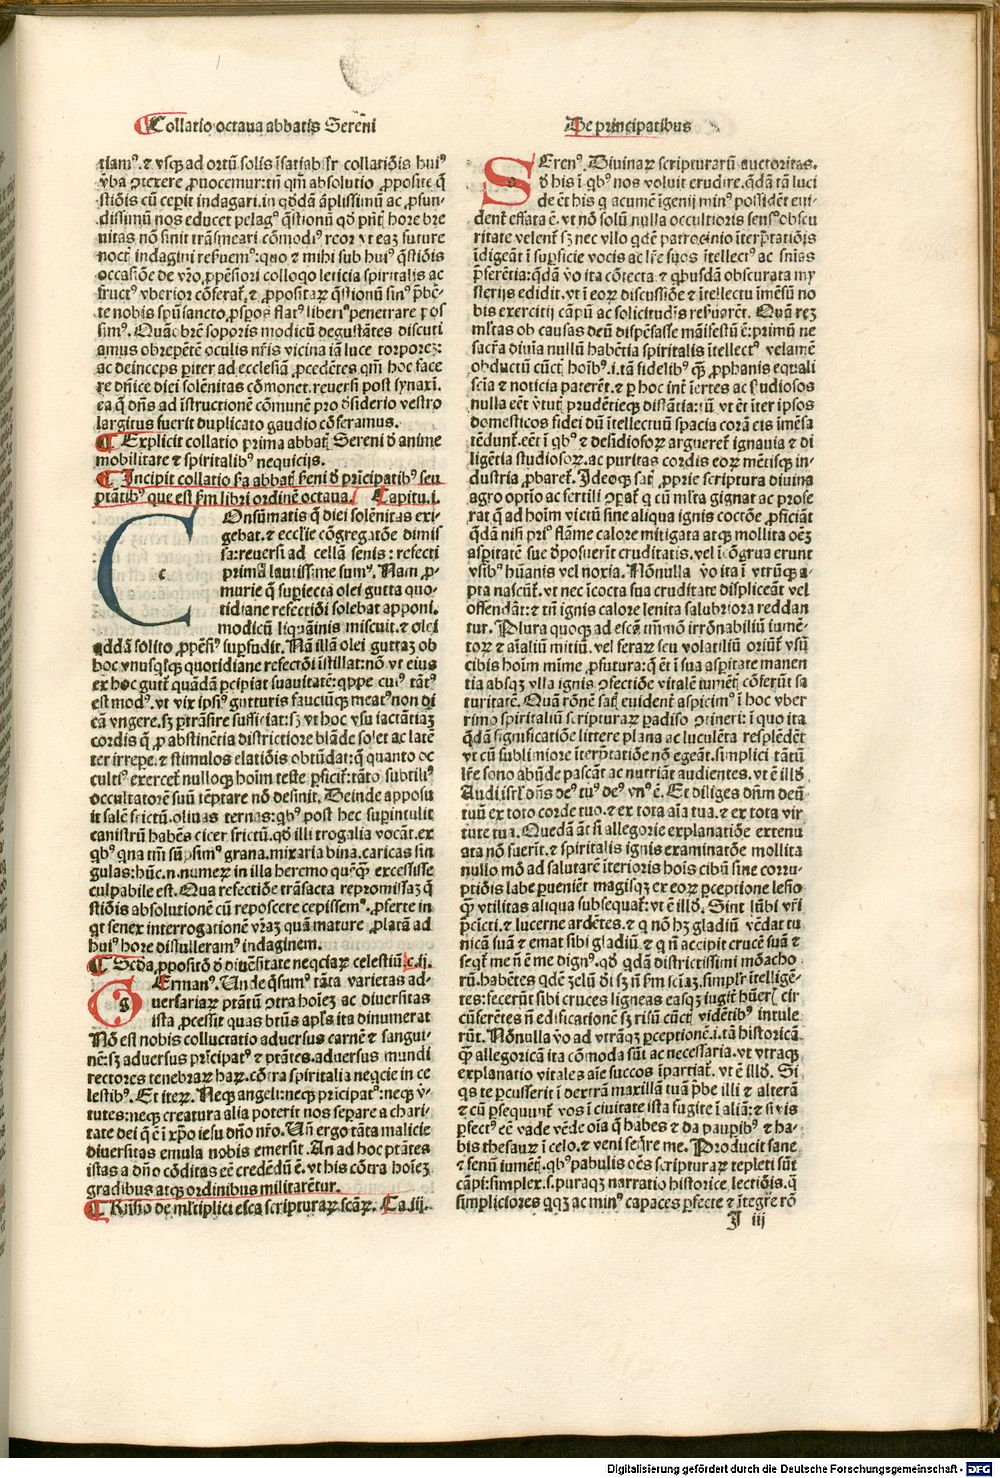 Collatio octaua abbatis Sereni
De principatibus
tiam⁹. ⁊ vsq̄ ad ortū solis ĩsatiabĩlr collatiōis hui⁹
v̄ba ꝯtexere ꝓuocemur: tñ qm̄ absolutio ꝓposite q̄
stiōis cū ceꝑit indagari. in qōdā āplissimū ac ꝓfun-
dissimū nos educet pelag⁹ q̄stionū qō p̄nt̄ hore bre
uitas nō sinit trāsmeari cōmodi⁹ reor vt eaꝫ future
noct̄ indagini reẞuem⁹: quo ⁊ mihi sub hui⁹ q̄stiōis
occasiōe de v̄ro ꝓpēsiori colloqo leticia spiritalis ac
fruct⁹ vberior cōferat̄. ⁊ ꝓpositaꝝ q̄stionū sin⁹ p̄bē-
te nobis spū sancto ꝓspoꝝ flat⁹ liberi⁹ penetrare pos
sim⁹. Quāobrē soporis modicū degustātes discuti
amus obrepētē oculis nr̄is vicina iā luce torporeꝫ:
ac deinceps ꝑiter ad ecclesiā ꝓcedētes qm̄ hoc face
re dn̄ice diei solēnitas cōmonet. reuersi post synaxī.
ea q̄ dn̄s ad ĩstructionē cōmunē pro ōsiderio vestro
largitus fuerit duplicato gaudio cōferamus.
Explicit collatio prima abbat̄ Sereni ō anime
mobilitate ⁊ spiritalib⁹ nequicijs.
Incipit collatio ẞa abbat̄ ẞeni ō prīcipatib⁹ seu
ptātib⁹ que est ẞm libri ordinē octaua. Capitu. i.
COnsūmatis q̄ diei solēnitas exi-
gebat. ⁊ ecclīe cōgregatōe dimis
sa: reuersi ad cellā senis: refecti
primū lautissime sum⁹. Nam ꝓ
murie q̄ suꝑiecta olei gutta quo-
tidiane refectiōi solebat apponi.
modicū liquāinis miscuit. ⁊ olei
qddā solito ꝓpēsi⁹ suꝑfudit. Nā illā olei guttaꝫ ob
hoc vnusqsqꝫ quotidiane refectōi ĩstillat: nō vt eius
ex hoc gutt̄ quādā ꝑcipiat suauitatē: qppe cui⁹ tāt⁹
est mod⁹. vt vix ipsi⁹ gutturis fauciūqꝫ meat⁹ non di
cā vngere. sꝫ ꝑtrāsire sufficiat: sꝫ vt hoc vsu iactātiaꝫ
cordis q̄ ꝓ abstinētia districtiore blāde solet ac latē
ter irrepe. ⁊ stimulos elatiōis obtūdat: q̄ quanto oc
culti⁹ exercet̄ nulloqꝫ hoīm teste ꝑficit̄: tāto subtili⁹
occultatorē suū tēptare nō desinit. Deinde apposu
it salē frictū. oliuas ternas: qb⁹ post hec suꝑintulit
canistrū habēs cicer frictū. qō illi trogalia vocāt. ex
qb⁹ qna tm̄ sūpsim⁹ grana. mixaria bina. caricas sin
gulas: hūc. n. numeꝝ in illa heremo qūqꝫ excessisse
culpabile est. Qua refectiōe trāsacta repromissaꝫ q̄
stiōis absolutionē cū reposcere cepissem⁹. ꝓferte in
qt senex interrogationē vr̄aꝫ quā mature ꝓlatā ad
hui⁹ hore distulleram⁹ indaginem.
Scd̄a ꝓpositō ō diuẽsitate neqciaꝝ celestiū. c. ij.
GErman⁹. Unde q̄sum⁹ tāta varietas ad-
uersariaꝝ ptātū ꝯtra hoīeꝫ ac diuersitas
ista ꝓcessit quas bt̄us apl̄s ita dinumerat
Nō est nobis colluctatio aduersus carnē ⁊ sangui-
nē: sꝫ aduersus prīcipat⁹ ⁊ ptātes. aduersus mundi
rectores tenebraꝝ haꝝ. cōtra spiritalia neqcie in ce
lestib⁹. Et iteꝝ. Neqꝫ angeli: neqꝫ prīcipat⁹: neqꝫ v̄-
tutes: neqꝫ creatura alia poterit nos separe a chari-
tate dei q̄ ē ī xp̄o iesu dn̄o nr̄o. Uñ ergo tāta malicie
diuersitas emula nobis emersit. An ad hoc ptātes
istas a dn̄o cōditas eē credēdū ē. vt his cōtra hoīeꝫ
gradibus atqꝫ ordinibus militarētur.
Rn̄sio de mltiplici esca scripturaꝝ scāꝝ. Ca. iij.
SEren⁹. Diuinaꝝ scripturarū auctoritas.
ō his ī qb⁹ nos voluit erudire. qdā tā luci
de ēt his q acumē īgenij min⁹ possidēt eui-
dent̄ effata ē. vt nō solū nulla occultioris sens⁹ obscu
ritate velent̄ sꝫ nec vllo qdē patrocinio ĩterp̄tatiōis
ĩdigeāt ī superficie vocis ac lr̄e suos ĩtellect⁹ ac sn̄ias
p̄ferētia: qdā vo ita cōtecta ⁊ qbusdā obscurata my
sterijs edidit. vt ī eoꝝ discussiōe ⁊ ĩtellectu ĩmēsū no
bis exercitij cāpū ac solicitudis reẞuaret̄. Quā reꝫ
ml̄tas ob causas deū dispēsasse māifestū ē: primū ne
sacr̄a diuīa nullū habētia spiritalis ĩtellect⁹ velamē
obductū cūct̄ hoīb⁹. i. tā fidelib⁹ q̄ꝫ ꝓphanis equali
scīa ⁊ noticia paterēt. ⁊ ꝑ hoc int̄ iertes ac studiosos
nulla eēt v̄tut̄ prudētieqꝫ distātia: tū vt ēt iter ipsos
domesticos fidei dū ĩtellectuū spacia corā eis imēsa
tēdunt̄. eēt ī qb⁹ ⁊ desidiosoꝝ argueret̄ ignauia ⁊ di
ligētia studiosoꝝ. ac puritas cordis eoꝝ mētisqꝫ in-
dustria ꝓbaret̄. Ideoqꝫ sat̄ ꝓprie scriptura diuina
agro optio ac fertili ꝯpat̄ q cū ml̄ta gignat ac profe
rat q̄ ad hoīm victū sine aliqua ignis coctōe ꝓficiāt
qdā nisi pri⁹ flāme calore mitigata atqꝫ mollita oēꝫ
aspitatē sue ōposuerīt cruditatis. vel ĩcōgrua erunt
vsib⁹ hūanis vel noxia. Nōnulla vo ita ī vtrūqꝫ a-
pta nascūt̄. vt nec ĩcocta sua cruditate displiceāt vel
offendāt: ⁊ tn̄ ignis calore lenita salubriora reddan
tur. Plura quoqꝫ ad escā tm̄mō irrōnabiliū iumē-
toꝝ ⁊ aīaliū mitiū. vel feraꝝ seu volatiliū oriūt̄ vsū
cibis hoīm mīme ꝓfutura: q̄ ēt ī sua aspitate manen
tia absqꝫ vlla ignis ꝯfectiōe vitalē iumēt̄ cōferūt sa
turitatē. Quā rōnē sat̄ euident̄ aspicim⁹ ī hoc vber
rimo spiritaliū scripturaꝝ padiso ꝯtineri: ī quo ita
qdā significatiōe littere plana ac luculēta resplēdēt
vt cū sublimiore ĩterp̄tatiōe nō egeāt. simplici tātū
lr̄e sono abūde pascāt ac nutriāt audientes. vt ē illō.
Audi isrl̄ dn̄s de⁹ tu⁹ de⁹ vn⁹ ē. Et diliges dn̄m deū
tuū ex toto corde tuo. ⁊ ex tota aīa tua. ⁊ ex tota vir
tute tua. Quedā āt si allegorie explanatiōe extenu
ata nō fuerīt. ⁊ spiritalis ignis examinatōe mollita
nullo mō ad salutarē ĩterioris hoīs cibū sine corru-
ptiōis labe ꝑueniēt magisqꝫ ex eoꝝ ꝑceptione lesio
q̄ꝫ vtilitas aliqua subsequat̄: vt ē illō. Sint lūbi vr̄i
p̄cīcti. ⁊ lucerne ardētes. ⁊ q nō hꝫ gladiū vēdat tu
nicā suā ⁊ emat sibi gladiū. ⁊ q nō accipit crucē suā ⁊
seqt̄ me nō ē me dign⁹. qō qdā districtissimi mōacho
rū. habētes qdē ꝫelū ōi sꝫ nō ẞm sciāꝫ. simplr̄ ĩtelligē-
tes: fecerūt sibi cruces ligneas easqꝫ iugit̄ hūer⁹ cir
cūferētes nō edificationē sꝫ risū cūct̄ vidētib⁹ intule
rūt. Nōnulla vo ad vtrāqꝫ ꝑceptionē. i. tā historicā
q̄ꝫ allegoricā ita cōmoda sūt ac necessaria. vt vtraqꝫ
explanatio vitales aīe succos ĩpartiat̄. vt ē illō. Si
qs te ꝑcusserit ī dextrā maxillā tuā p̄be illi ⁊ alterā
⁊ cū ꝑsequunt̄ vos ī ciuitate ista fugite ī aliā: ⁊ si vis
ꝑfect⁹ eē vade vēde oīa q̄ habes ⁊ da paupib⁹ ⁊ ha-
bis thesauꝝ ī celo. ⁊ veni seqre me. Producit sane
⁊ fenū iumēt̄. qb⁹ pabulis oēs scripturaꝝ repleti sūt
cāpi: simplex. s. puraqꝫ narratio historice lectiōis. q̄
simpliciores qqꝫ ac min⁹ capaces ꝑfecte ⁊ ĩtegre rō
I iij
Digitalisierung gefördert durch die Deutsche Forschungsgemeinschaft - DFG